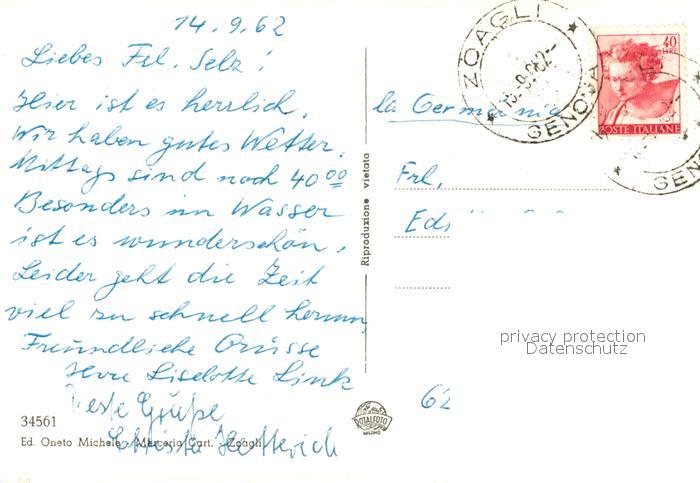 14.9.62
Liebes Frl. Selz!
Hier ist es herrlich.
Wir haben gutes Wetter.
Mittags sind noch 40°°
Besonders im Wasser
ist es wunderschön.
Leider geht die Zeit
viel zu schnell herum
Freundliche Grüsse
Ihre Liselotte Link
Beste Grüße
34561
Ed. Oneto Michele - Merceria Cart. - Zoagli
Riproduzione vietata
ROTALFOTO
MILANO
ZOAGLI
GENOVA
40
LIRE
POSTE ITALIANE
GEN
la Germania
Frl.
62
privacy protection
Datenschutz